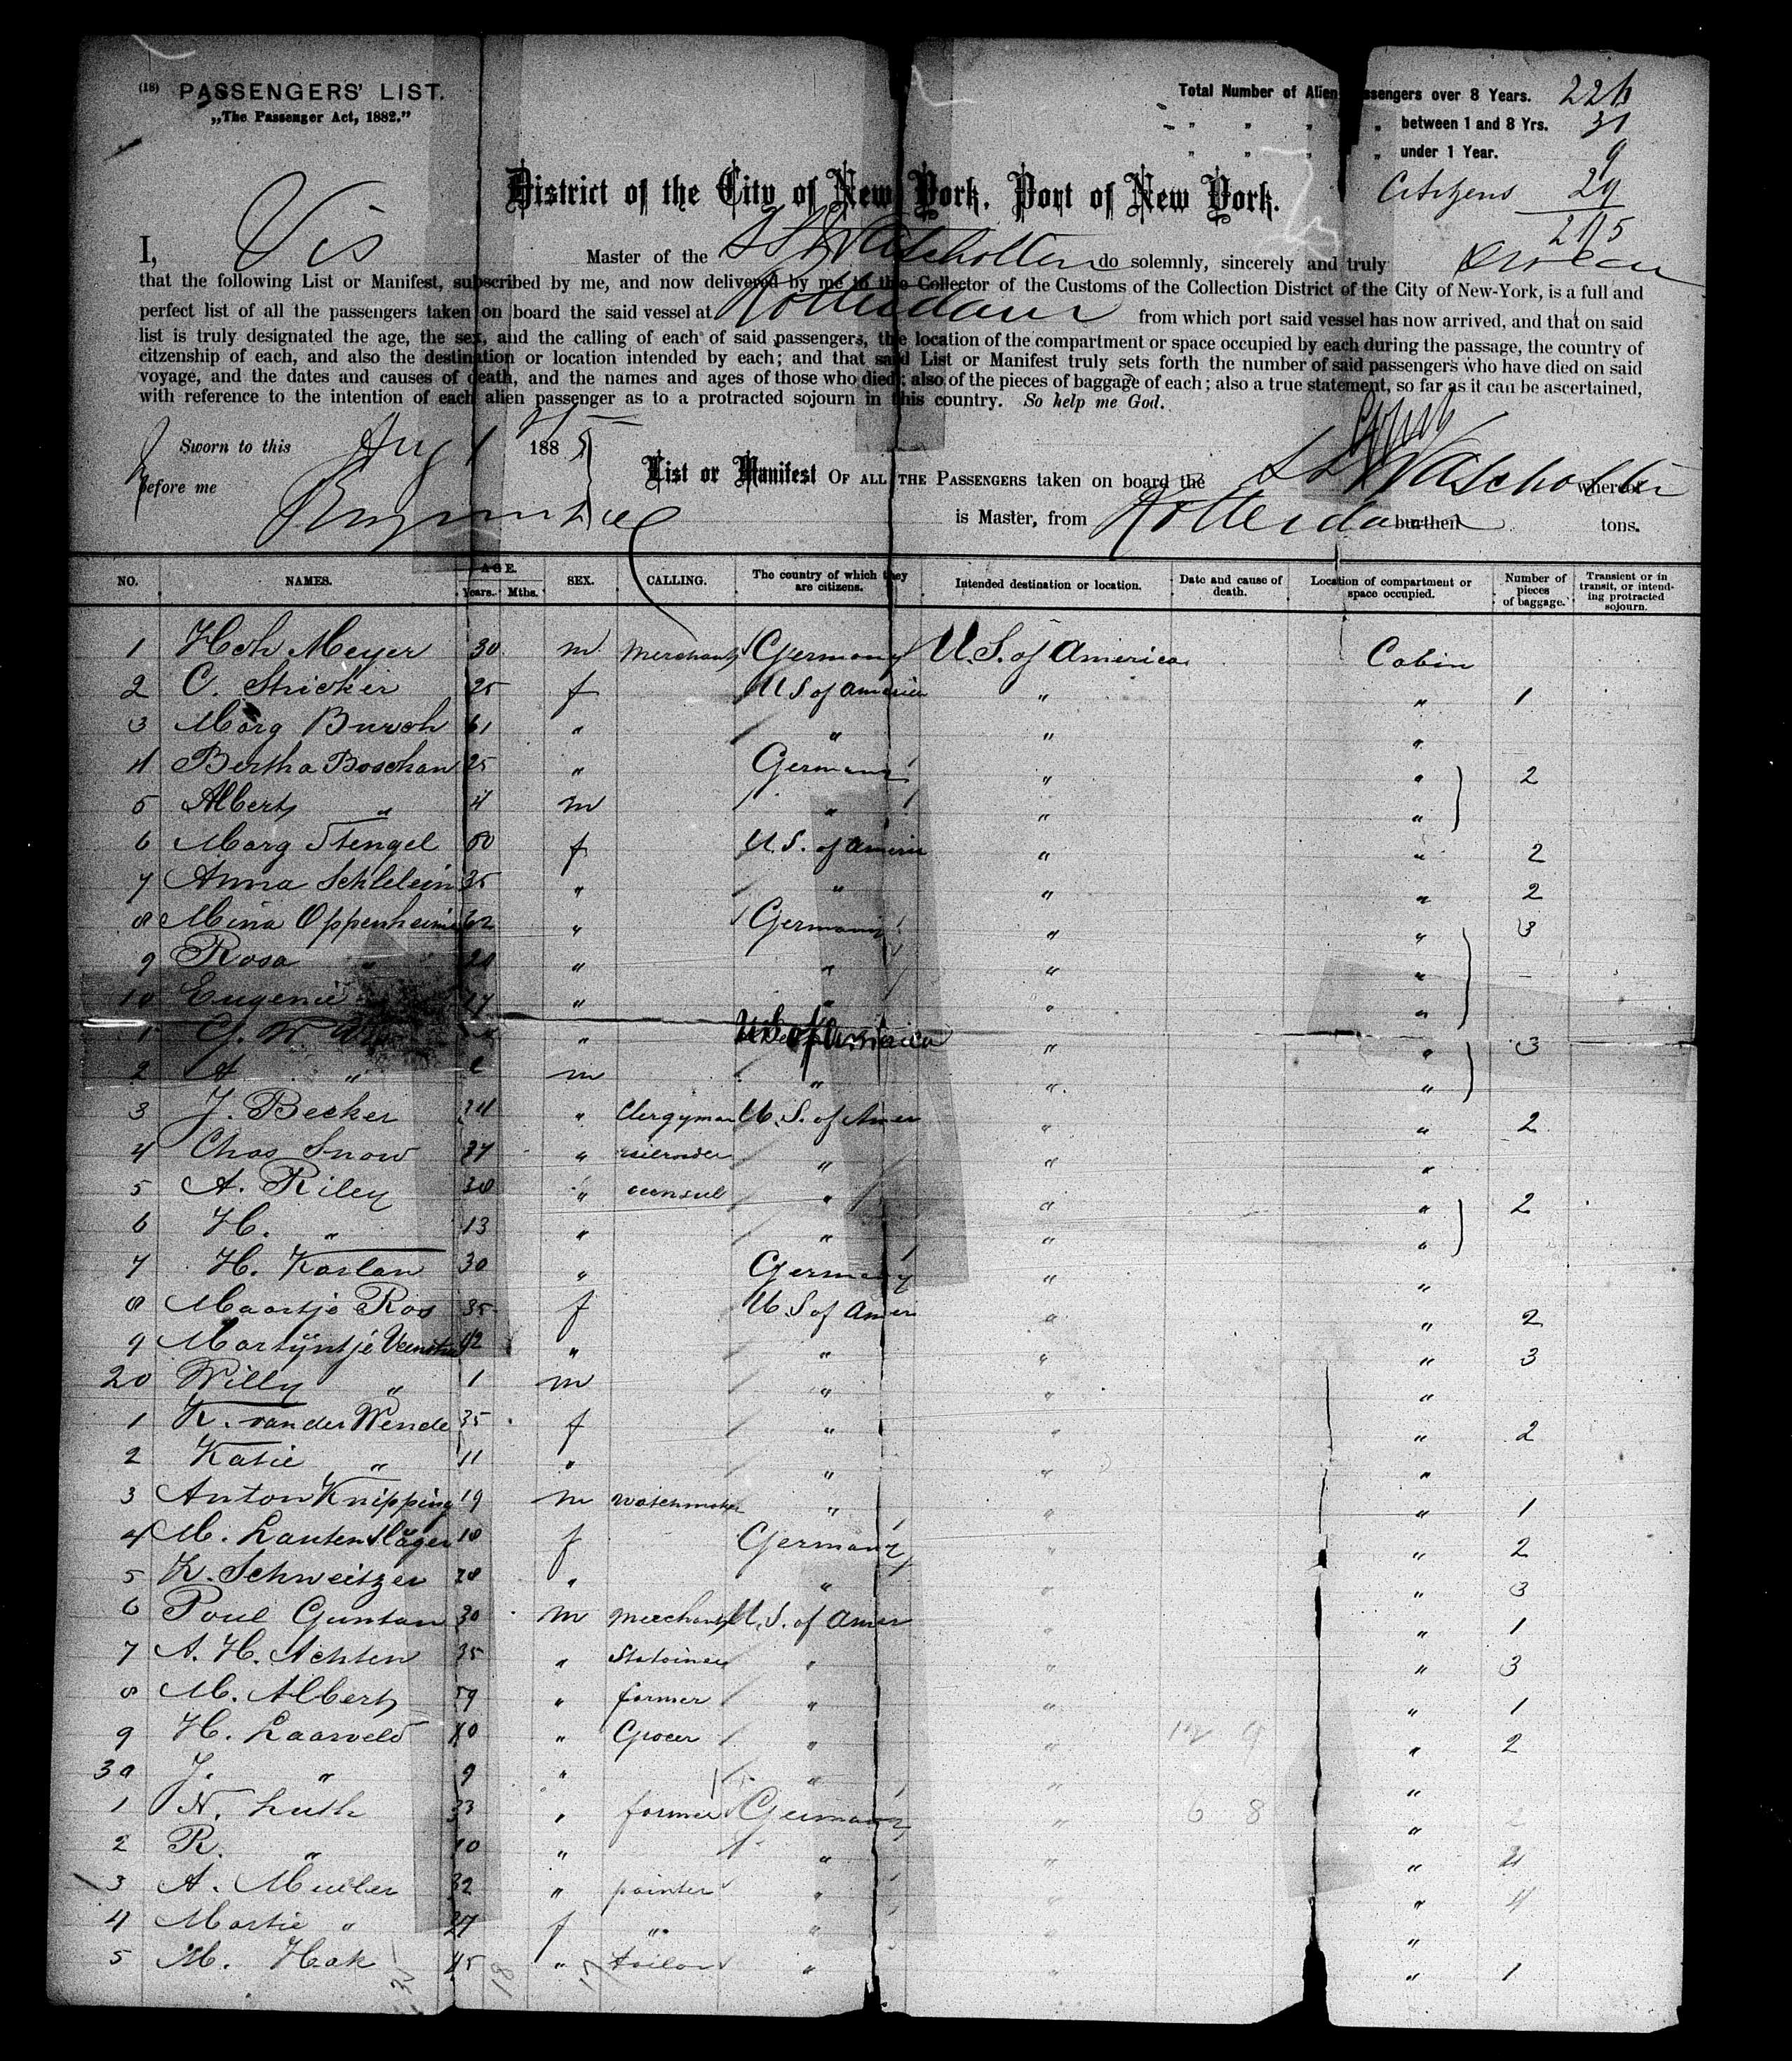 (18) PASSENGERS' LIST.
„The Passenger Act, 1882."
Total Number of Alien Passengers over 8 Years. 226
„ „ „ „ between 1 and 8 Yrs. 31
„ „ „ „ under 1 Year. 9
Citizens 29
295
District of the City of New York. Port of New York.
I, Vis Master of the SS W A Scholten do solemnly, sincerely and truly swear
that the following List or Manifest, subscribed by me, and now delivered by me to the Collector of the Customs of the Collection District of the City of New-York, is a full and
perfect list of all the passengers taken on board the said vessel at Rotterdam from which port said vessel has now arrived, and that on said
list is truly designated the age, the sex, and the calling of each of said passengers, the location of the compartment or space occupied by each during the passage, the country of
citzenship of each, and also the destination or location intended by each; and that said List or Manifest truly sets forth the number of said passengers who have died on said
voyage, and the dates and causes of death, and the names and ages of those who died; also of the pieces of baggage of each; also a true statement, so far as it can be ascertained,
with reference to the intention of each alien passenger as to a protracted sojourn in this country. So help me God.
Sworn to this Aug 1 1885
before me
List or Manifest OF ALL THE PASSENGERS taken on board the SS W A Scholten whereof
is Master, from Rotterdam burthen tons.
NO. NAMES. AGE. Years. Mths. SEX. CALLING. The country of which they are citizens. Intended destination or location. Date and cause of death. Location of compartment or space occupied. Number of pieces of baggage. Transient or in transit, or intending protracted sojourn.
1 Hch Meyer 30 m Merchant Germany U.S. of America Cabin
2 C. Stricker 25 f U S of America „ „ 1
3 Marg Bursch 61 „ „ „ „
4 Bertha Boschan 25 „ Germany „ „ 2
5 Albert „ 4 m „ „ „
6 Marg Stengel 50 f U.S. of Americ „ „ 2
7 Anna Schlelein 35 „ „ „ „ 2
8 Mina Oppenheime 62 „ Germany „ „ 3
9 Rosa „ 20 „ „ „ „
10 Eugenie 17 „ „ „ „
1 G. W. „ U S of America „ „ 3
2 A „ m „ „ „
3 J. Becker 34 „ Clergyman U.S. of Amer „ „ 2
4 Chas Snow 27 „ „ „ „
5 A. Riley 38 „ consul „ „ „ 2
6 H. „ 13 „ „ „ „
7 H. Kaslan 30 „ Germany „ „
8 Maartje Ros 35 f U S of Amer „ „ 2
9 Martijntje Veenstra 42 „ „ „ „ 3
20 Willy „ 1 m „ „ „
1 K. van der Wende 35 f „ „ „ 2
2 Katie „ 11 „ „ „ „
3 Anton Knipping 19 m Watchmaker „ „ „ 1
4 M. Lautenslager 18 f Germany „ „ 2
5 K. Schweitzer 28 „ „ „ „ 3
6 Poul Guntan 30 m Merchant U.S. of Amer „ „ 1
7 A. H. Achten 35 „ „ „ „ 3
8 M. Albert 59 „ farmer „ „ „ 1
9 H. Laarveld 40 „ Grocer „ „ „ 2
30 J. „ 9 „ „ „ „
1 N. Luth 33 „ farmer Germany „ „ 2
2 R. „ 10 „ „ „ „
3 A. Muller 32 „ painter „ „ „ 4
4 Martie „ 27 f „ „ „ „
5 M. Hak 45 „ tailor „ „ „ 1